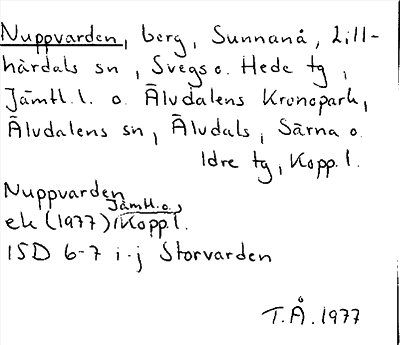 Nuppvarden, berg, Sunnanå, Lill-
härdals sn, Svegs o. Hede tg,
Jämtl. l. o. Älvdalens Kronopark,
Älvdalens sn, Älvdals, Särna o.
Idre tg, Kopp. l.
Nuppvarden
Jämtl. o.
ek (1977) Kopp. l.
ISD 6-7 i-j Storvarden
T.Å. 1977